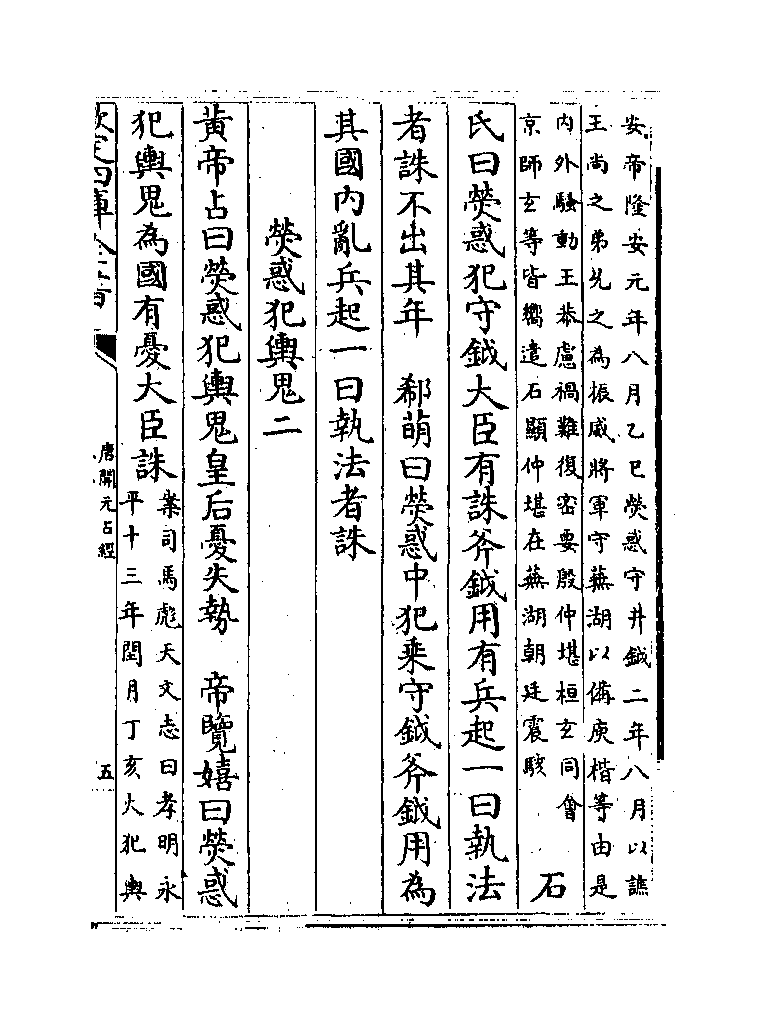 安帝隆安元年八月乙巳熒惑守井鉞二年八月以譙
王尚之弟允之為振威將軍守蕪湖以備庾楷等由是
內外騷動王恭慮禍難復密要殷仲堪桓玄同會
京師玄等皆嚮遣石顯仲堪在蕪湖朝廷震駭　石
氏曰熒惑犯守鉞大臣有誅斧鉞用有兵起一曰執法
者誅不出其年　郗萌曰熒惑中犯乗守鉞斧鉞用為
其國內亂兵起一曰執法者誅
熒惑犯輿鬼二
黃帝占曰熒惑犯輿鬼皇后憂失勢　帝覽嬉曰熒惑
犯輿鬼為國有憂大臣誅
案司馬彪天文志曰孝明永
平十三年閏月丁亥火犯輿
欽定四庫全書
唐開元占經
五